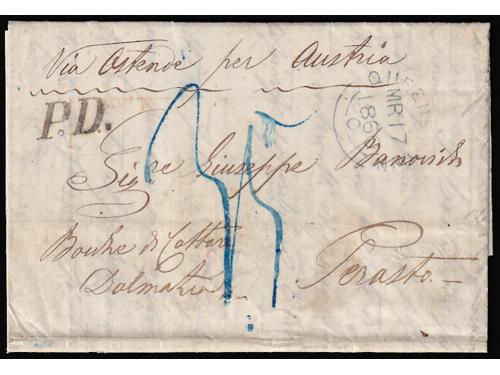 Via Ostende per Austria
P.D.
QUEENS
MR 17
186
C
Sigre Giuseppe
Bocche di Cattaro
Dalmatia
Perasto